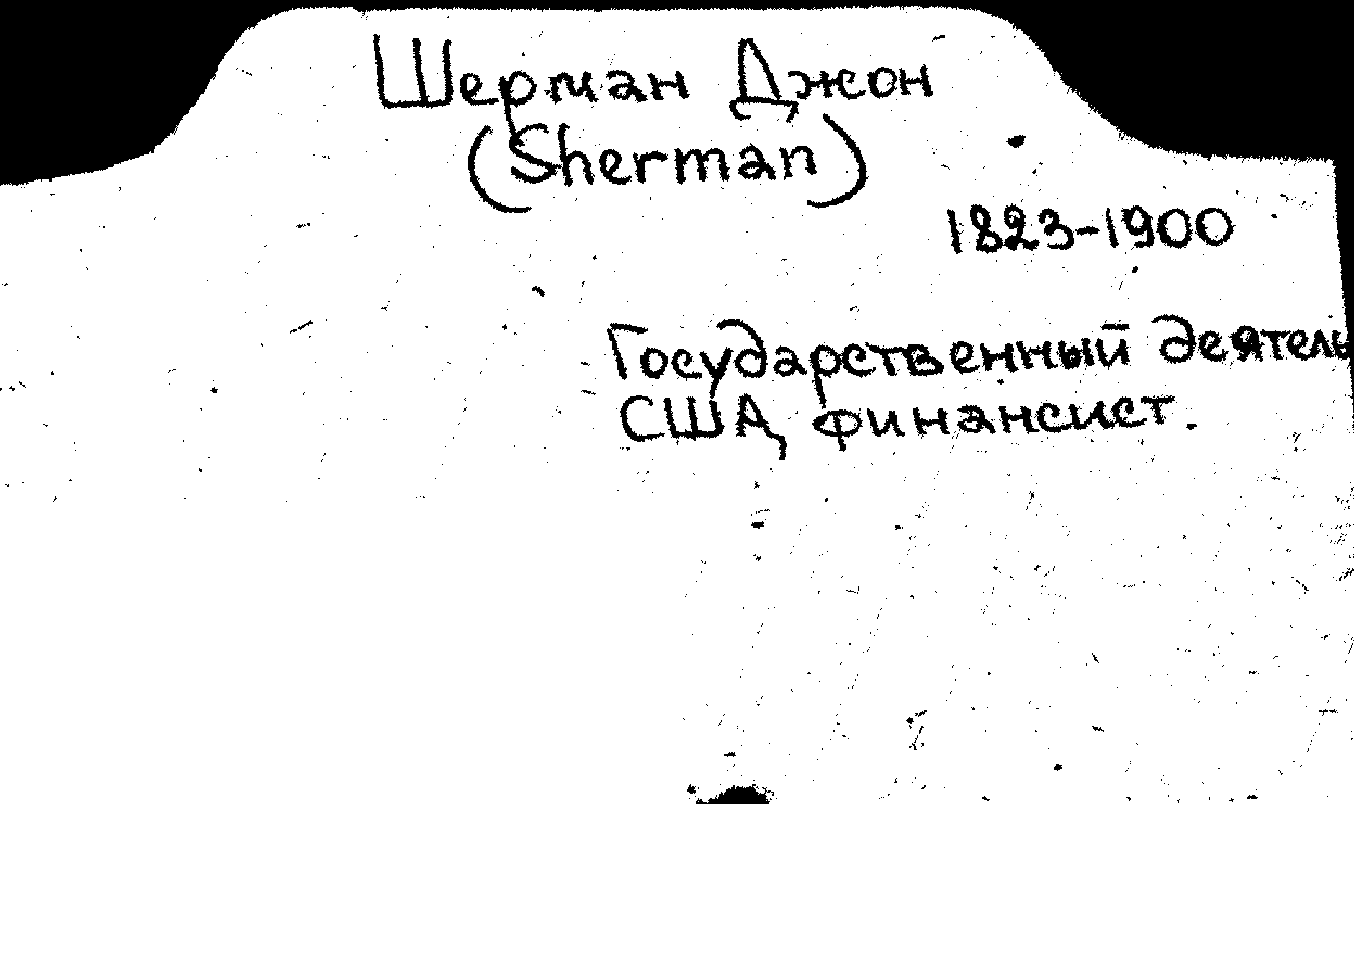 Шерман Джон
(Sherman)
1823-1900
Государственный деятель
США, финансист.